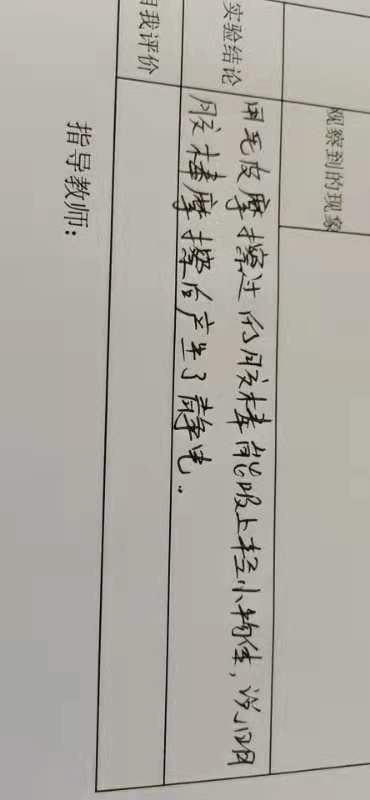 观察到的现象
实验结论
用毛皮摩擦过的胶棒能吸上轻小物体，说明
胶棒摩擦后产生了静电．
自我评价
指导教师：